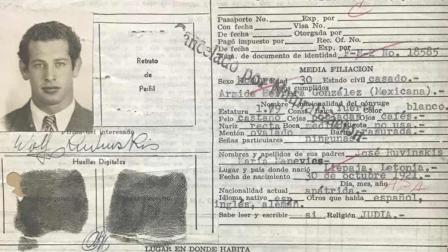 Pasaporte No. Exp. por
Con fecha Visa No.
De fecha Otorgada por
Pagó impuesto por Rec. Of. No.
De fecha Exp. por
de documento de identidad F-M-E No. 18585
Retrato
de
Perfil
Cancelado por
MEDIA FILIACION
Sexo 30 Estado civil casado.
cumplidos
González (Mexicana).
Estatura 1.79 nacionalidad del cónyuge blanco.
Pelo castaño Cejas pobladas cafés.
Nariz recta no usa.
Mentón ovalado rasurada.
Señas particulares ninguna
Firma del interesado
Wolf Ruvinskis
Huellas Digitales
Nombres y apellidos de sus padres José Ruvinskis
Lugar y país donde nació Liepaja, Letonia.
Fecha de nacimiento 30 de octubre 1921.
Día, mes, año
Nacionalidad actual apátrida.
Idioma, nativo esp. Otros que habla español,
inglés, alemán.
Sabe leer y escribir si Religión JUDIA.
LUGAR EN DONDE HABITA